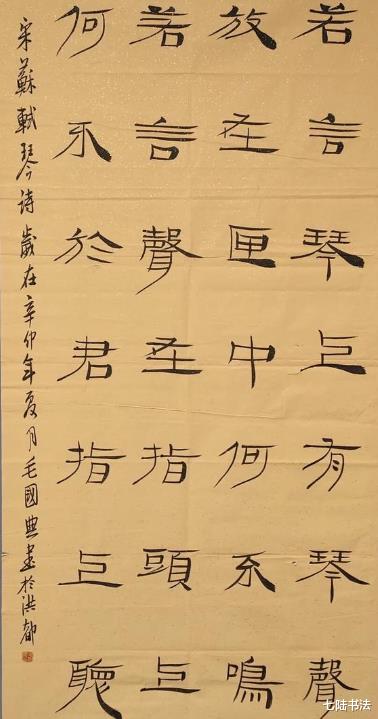 若言琴上有琴聲
放在匣中何不鳴
若言聲在指頭上
何不於君指上聽
宋蘇軾琴詩歲在辛卯年夏月毛國典書於洪都
七陆书法